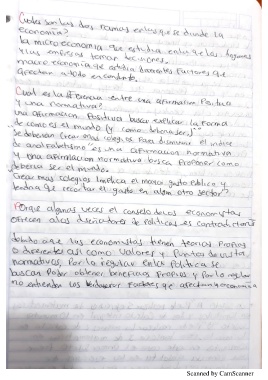 Cuales son las dos ramas en las que se divide la
economía?
La micro economía que estudia en los que los hogares
y las empresas toman decisiones.
macro economía que estudia diferentes factores que
afectan a todo en conjunto.
Cuál es la diferencia entre una afirmación Positiva
y una normativa?
una afirmación Positiva busca explicar la forma
de como es el mundo (y como funciona)
"se deberían crear más colegios Para disminuir el indice
de analfabetismo" es una afirmación normativa
y una afirmación normativa busca Proponer como
debería ser el mundo.
Crear más colegios implica el mayor gasto público y
tendría que recortar el gasto en algún otro sector?
Porque algunas veces el consejo de los economistas
ofrecen a los diseñadores de Políticas es contradictorios
debido a que los economistas tienen teorías Propias
o diferentes así como valores y Puntos de vista
normativos, Por lo regular en los Políticos se
buscan Poder obtener beneficios Propios y Por lo regular
no entienden los factores que afectan la economía
Scanned by CamScanner